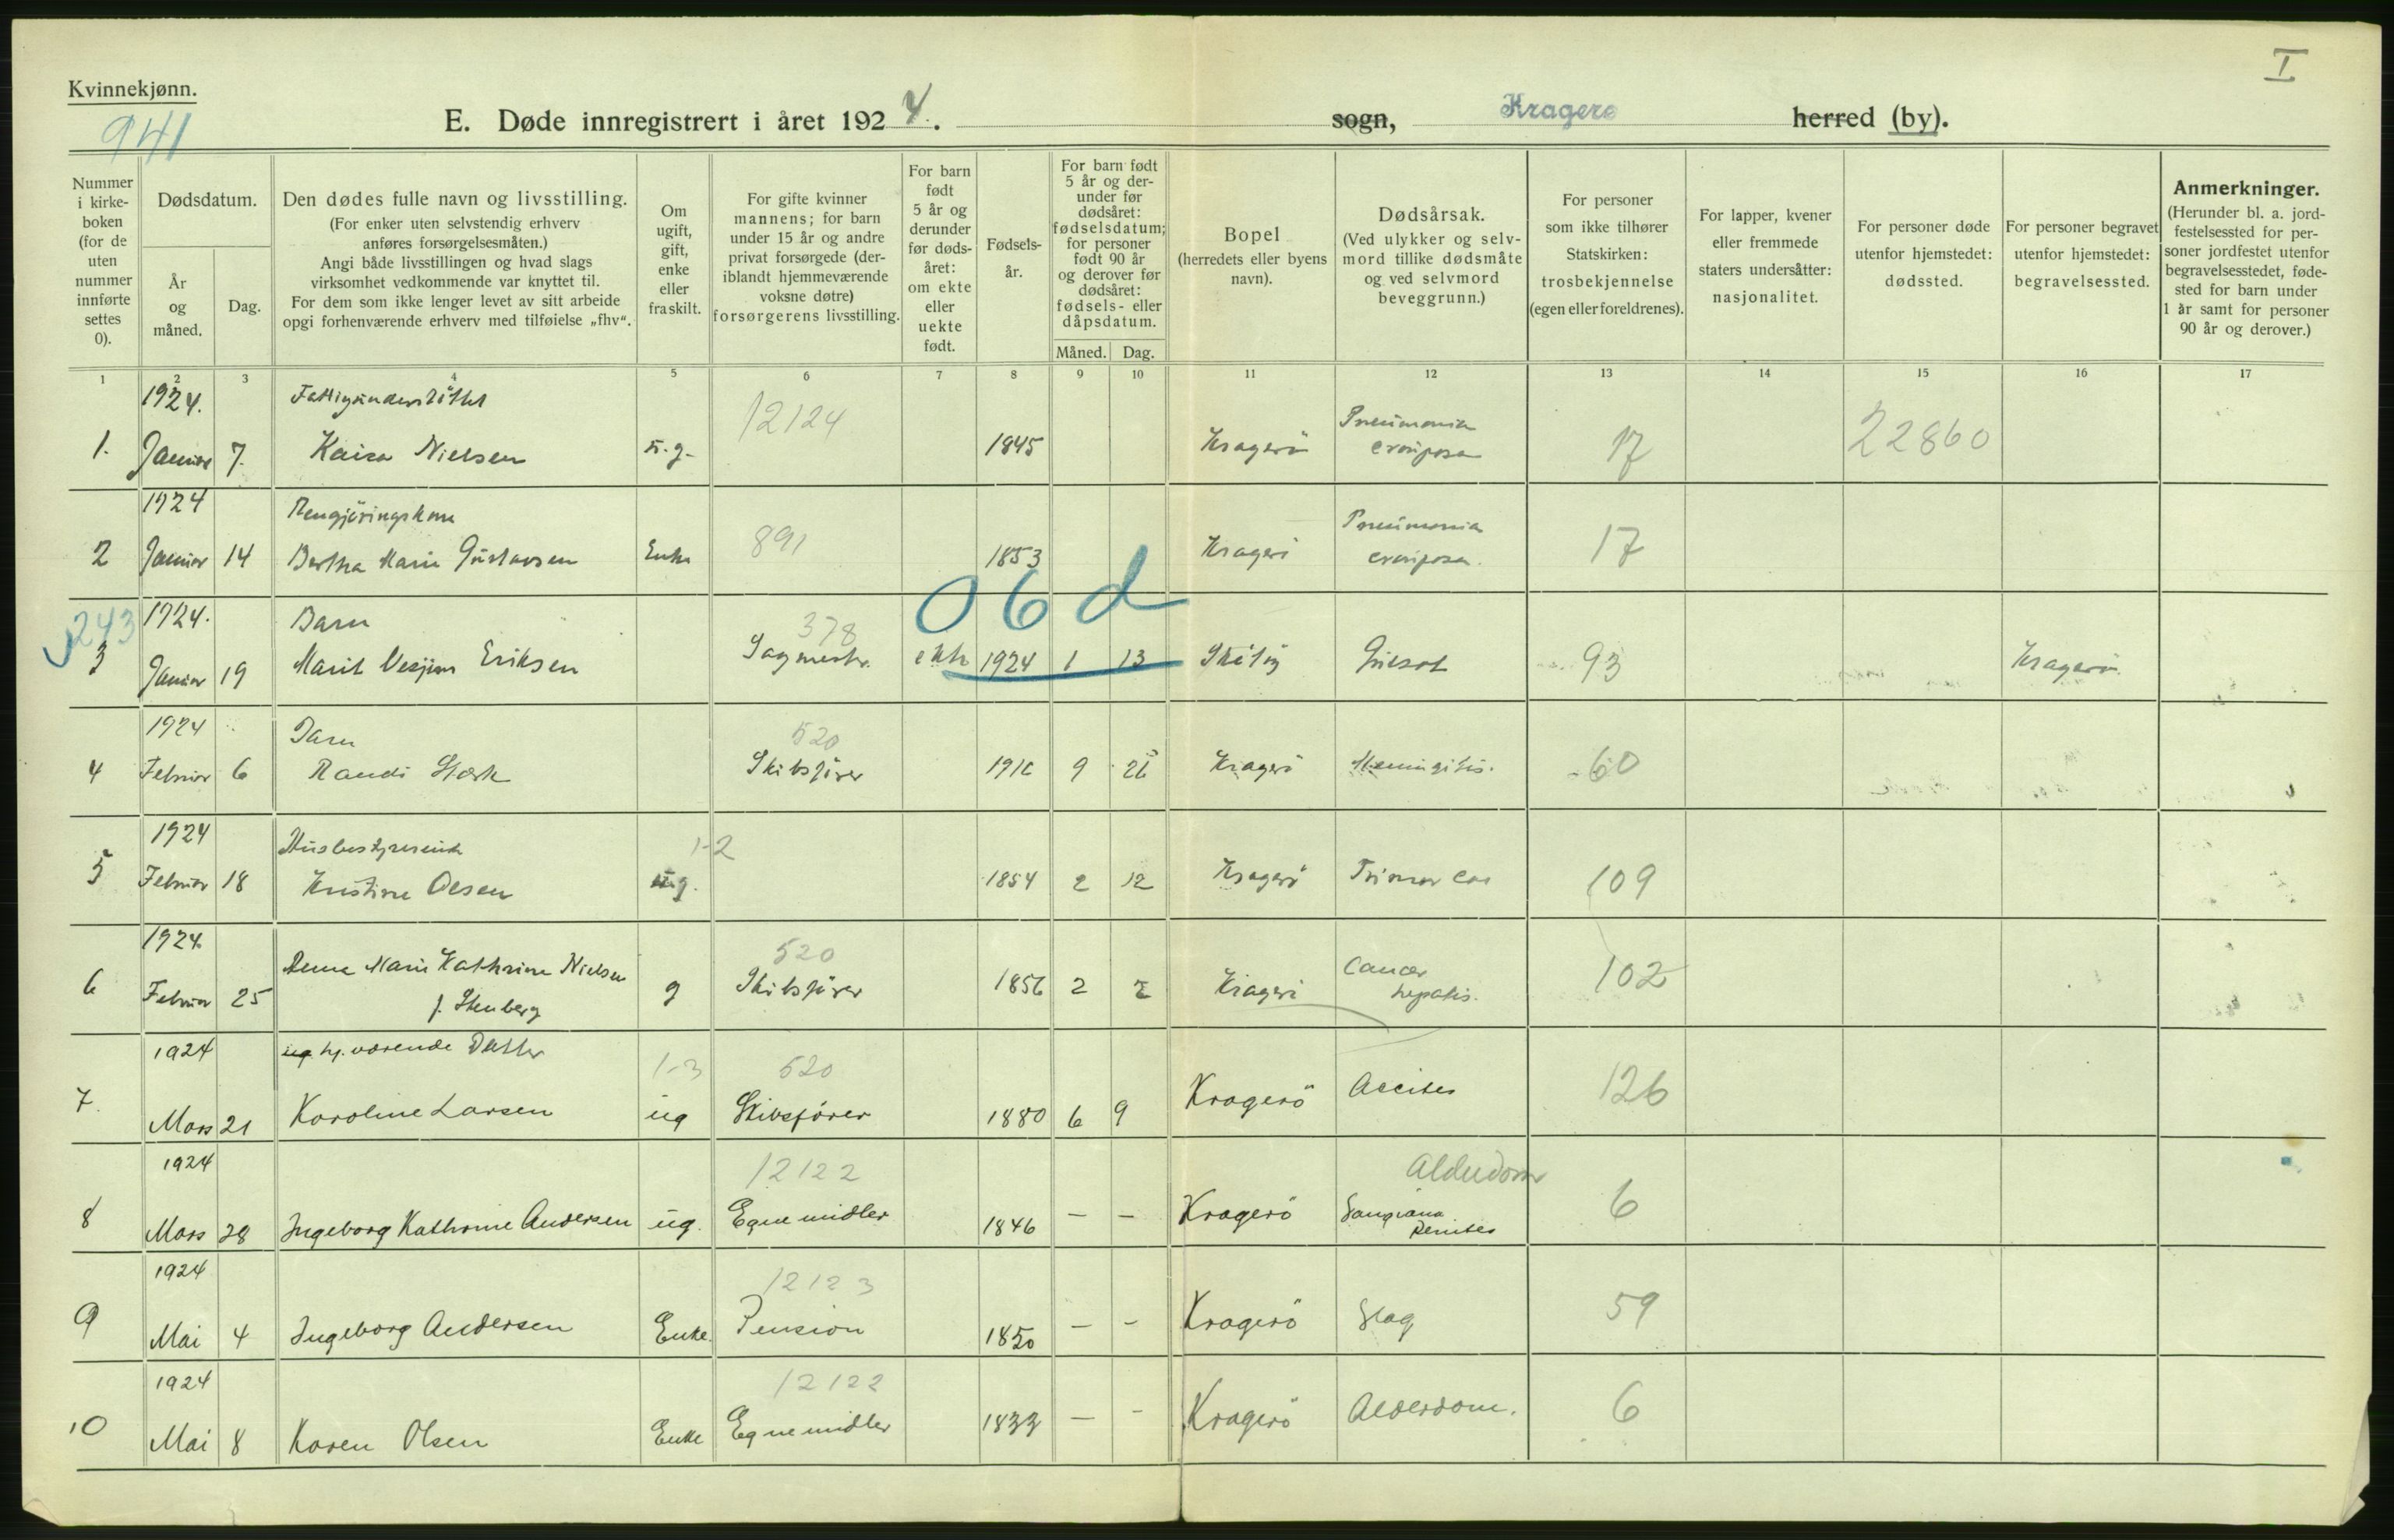 I
Kvinnekjønn.
941
E. Døde innregistrert i året 1924. sogn, Kragerø herred (by).
Nummer i kirkeboken (for de uten nummer innførte settes 0).
Dødsdatum.
År og måned.
Dag.
Den dødes fulle navn og livsstilling.
(For enker uten selvstendig erhverv anføres forsørgelsesmåten.)
Angi både livsstillingen og hvad slags virksomhet vedkommende var knyttet til.
For dem som ikke lenger levet av sitt arbeide opgi forhenværende erhverv med tilføielse „fhv“.
Om ugift, gift, enke eller fraskilt.
For gifte kvinner mannens; for barn under 15 år og andre privat forsørgede (deriblandt hjemmeværende voksne døtre) forsørgerens livsstilling.
For barn født 5 år og derunder før dødsåret: om ekte eller uekte født.
Fødselsår.
For barn født 5 år og derunder før dødsåret: fødselsdatum; for personer født 90 år og derover før dødsåret: fødsels- eller dåpsdatum.
Måned. Dag.
Bopel (herredets eller byens navn).
Dødsårsak.
(Ved ulykker og selvmord tillike dødsmåte og ved selvmord beveggrunn.)
For personer som ikke tilhører Statskirken: trosbekjennelse (egen eller foreldrenes).
For lapper, kvener eller fremmede staters undersåtter: nasjonalitet.
For personer døde utenfor hjemstedet: dødssted.
For personer begravet utenfor hjemstedet: begravelsessted.
Anmerkninger.
(Herunder bl. a. jordfestelsessted for personer jordfestet utenfor begravelsesstedet, fødested for barn under 1 år samt for personer 90 år og derover.)
1 2 3 4 5 6 7 8 9 10 11 12 13 14 15 16 17
1924. Fattigunderstöttet 12124 Pneumonia 22860
1. Januar 7. Kaisa Nielsen ü.g. 1845 Kragerö crouposa 17
1924 Rengjöringskone 891 Pneumonia
2 Januar 14 Bertha Marie Gustavsen Enke 1853 Kragerö crouposa. 17
06d
243 1924. Barn 378
3 Januar 19 Marit Eriksen Sagmestr. ekte 1924 1 13 Skåtöy Gulsot 93 Kragerö.
1924 Barn 520
4 Februar 6 Randi Stærk Skibsförer 1910 9 Kragerö Meningitis. 60
1924 Husbestyrerinde 1-2
5 Februar 18 Kristine Olsen üg. 1854 2 12 Kragerö Tumor 109
1924 Marie Kathrine Nielsen 520 Cancer
6 Februar 25 f. Stenberg g Skibsförer 1856 2 Kragerö hepatis. 102
1924 üg hj. værende Datter 1-3 520
7. Mars 21 Karoline Larsen üg Skibsförer 1880 6 9 Kragerö Ascites 126
1924 12122 Alderdom
8 Mars 28 Ingeborg Kathrine Andersen üg. Egne midler 1846 — — Kragerö 6
1924 12123
9 Mai 4 Ingeborg Andersen Enke. Pension 1850 — - Kragerö Slag 59
1924 12122
10 Mai 8 Karen Olsen Enke Egne midler 1833 — - Kragerö Alderdom. 6